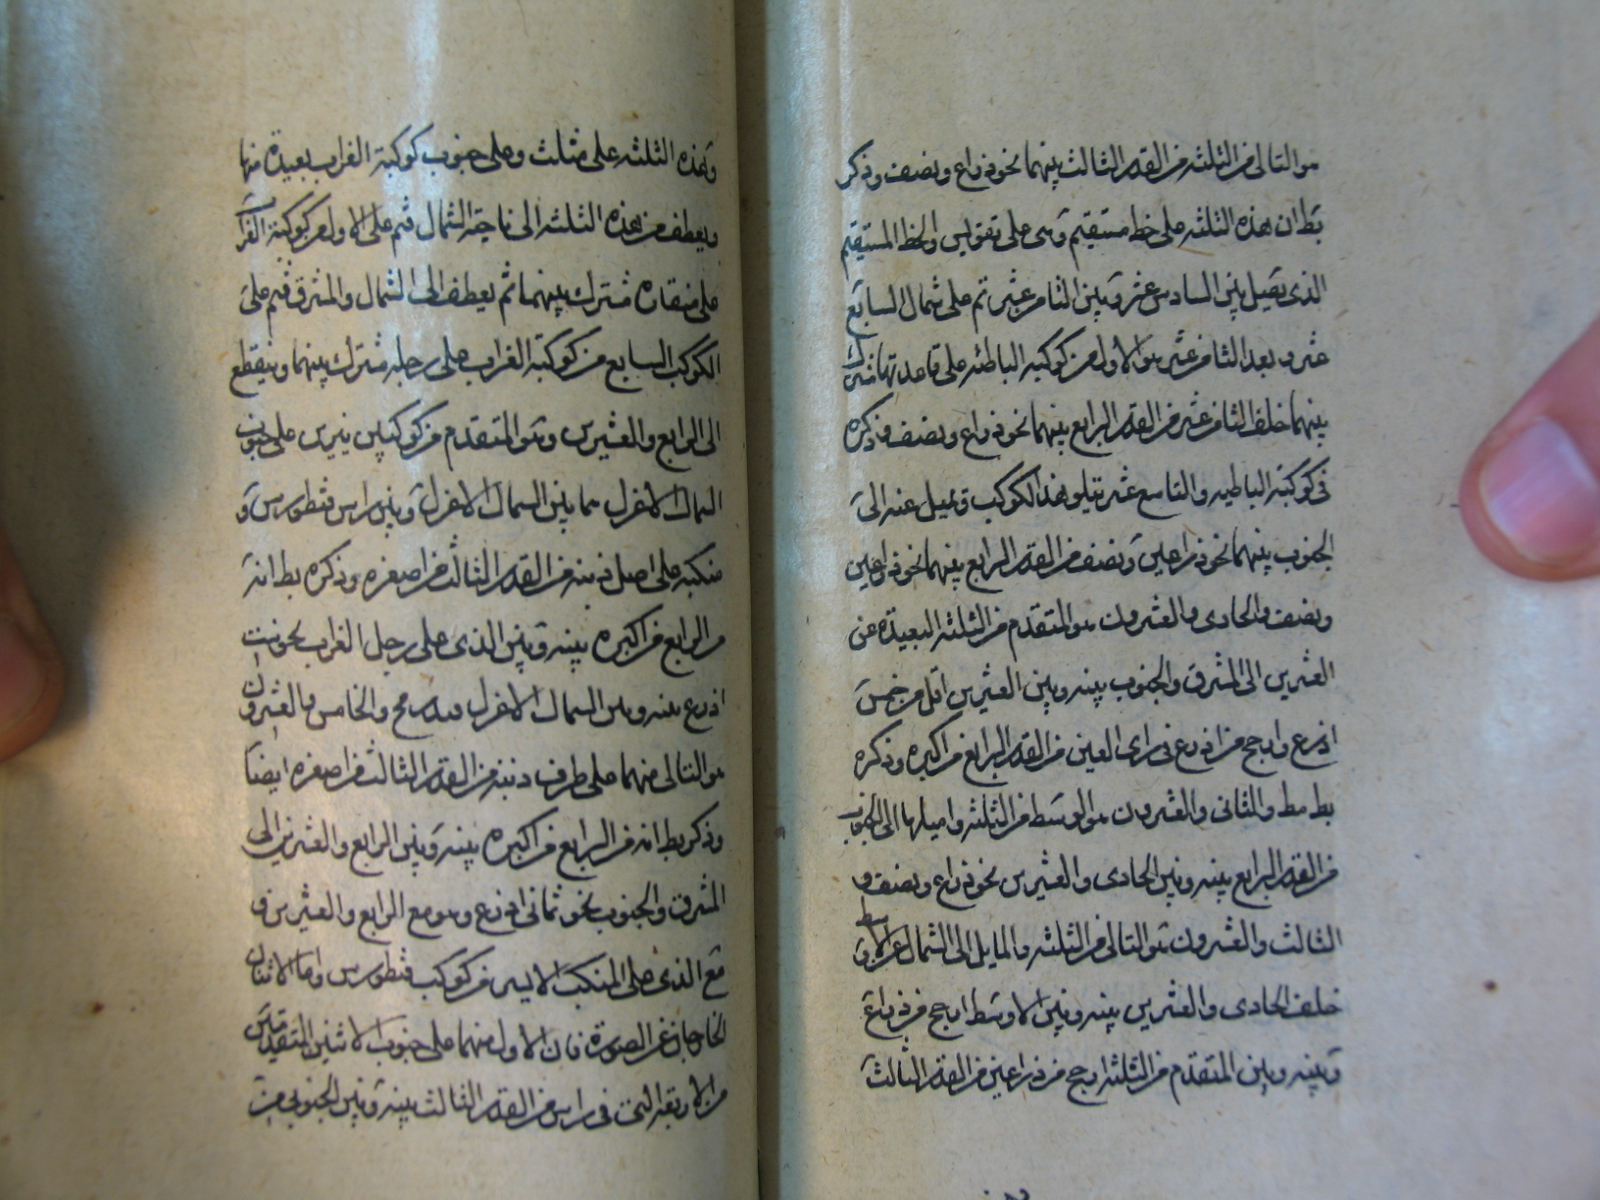 هو التالى من الثلثه من القدر الثالث بينهما نحو ذراع ونصف وذكر
بط ان هذه الثلثه على خط مستقيم وهى على تقويس والخط المستقيم
الذى يصل بين السادس عشر وبين الثامن عشر تم على شمال السابع
عشر وبعد الثامن عشر هو الاول من كوكبه الباطئه على قاعدتها مشترك
بينهما خلف الثامن عشر من القدر الرابع بينهما نحو ذراع ونصف وذكره
فى كوكبة الباطيه والتاسع عشر يتلو هذا الكوكب ويميل عنه الى
الجنوب بينهما نحو ذراعين ونصف من القدر الرابع بينهما نحو ذراعين
ونصف والحادى والعشرون هو المتقدم من الثلثه البعيدة عن
العشرين الى المشرق والجنوب بينه وبين العشرين اقل من خمس
اذرع وارجح من اذرع فى راى العين من القدر الرابع من اكبره وذكره
بط مط والثانى والعشرون هو الوسط من الثلثه واميلها الى الجنوب
من القدر الرابع بينه وبين الحادى والعشرين نحو ذراع ونصف و
الثالث والعشرون هو التالى من الثلثه والمايل الى الشمال عن الاوسط و
خلف الحادى والعشرين بينه وبين الاوسط ارجح من ذراع
وبينه وبين المتقدم من الثلثه ارجح من ذراعين من القدر الثالث
وهذه الثلثه على مثلث وعلى جنوب كوكبة الغراب بعيدة منها
ويعطف من هذه الثلثه الى ناحية الشمال فيم على الاول من كوكبة الغراب
على منقاره مشترك بينهما ثم يعطف الى الشمال والمشرق فيم على
الكوكب السابع من كوكبة الغراب على رجله مشترك بينهما وينقطع
الى الرابع والعشرين وهو المتقدم من كوكبين نيرين على جنوب
السماك الاعزل مما بين السماك الاعزل وبين راس قنطورس و
منكبه على اصل ذنبه من القدر الثالث من اصغره وذكره بط انه
من الرابع من اكبره بينه وبين الذى على رجل الغراب نحو ست
اذرع بينه وبين السماك الاعزل رمح والخامس والعشرون
هو التالى منهما على طرف ذنبه من القدر الثالث من اصغره ايضا
وذكر بط انه من الرابع من اكبره بينه وبين الرابع والعشرين الى
المشرق والجنوب نحو ثمانى اذرع وهو مع الرابع والعشرين و
مع الذى على المنكب الايسر من كوكب قنطورس واما الاثنان
الخارجان عن الصورة فان الاول منهما على جنوب الاثنين المتقدمين
من الاربعه التى فى راس من القدر الثالث بينه وبين الجنوبى من